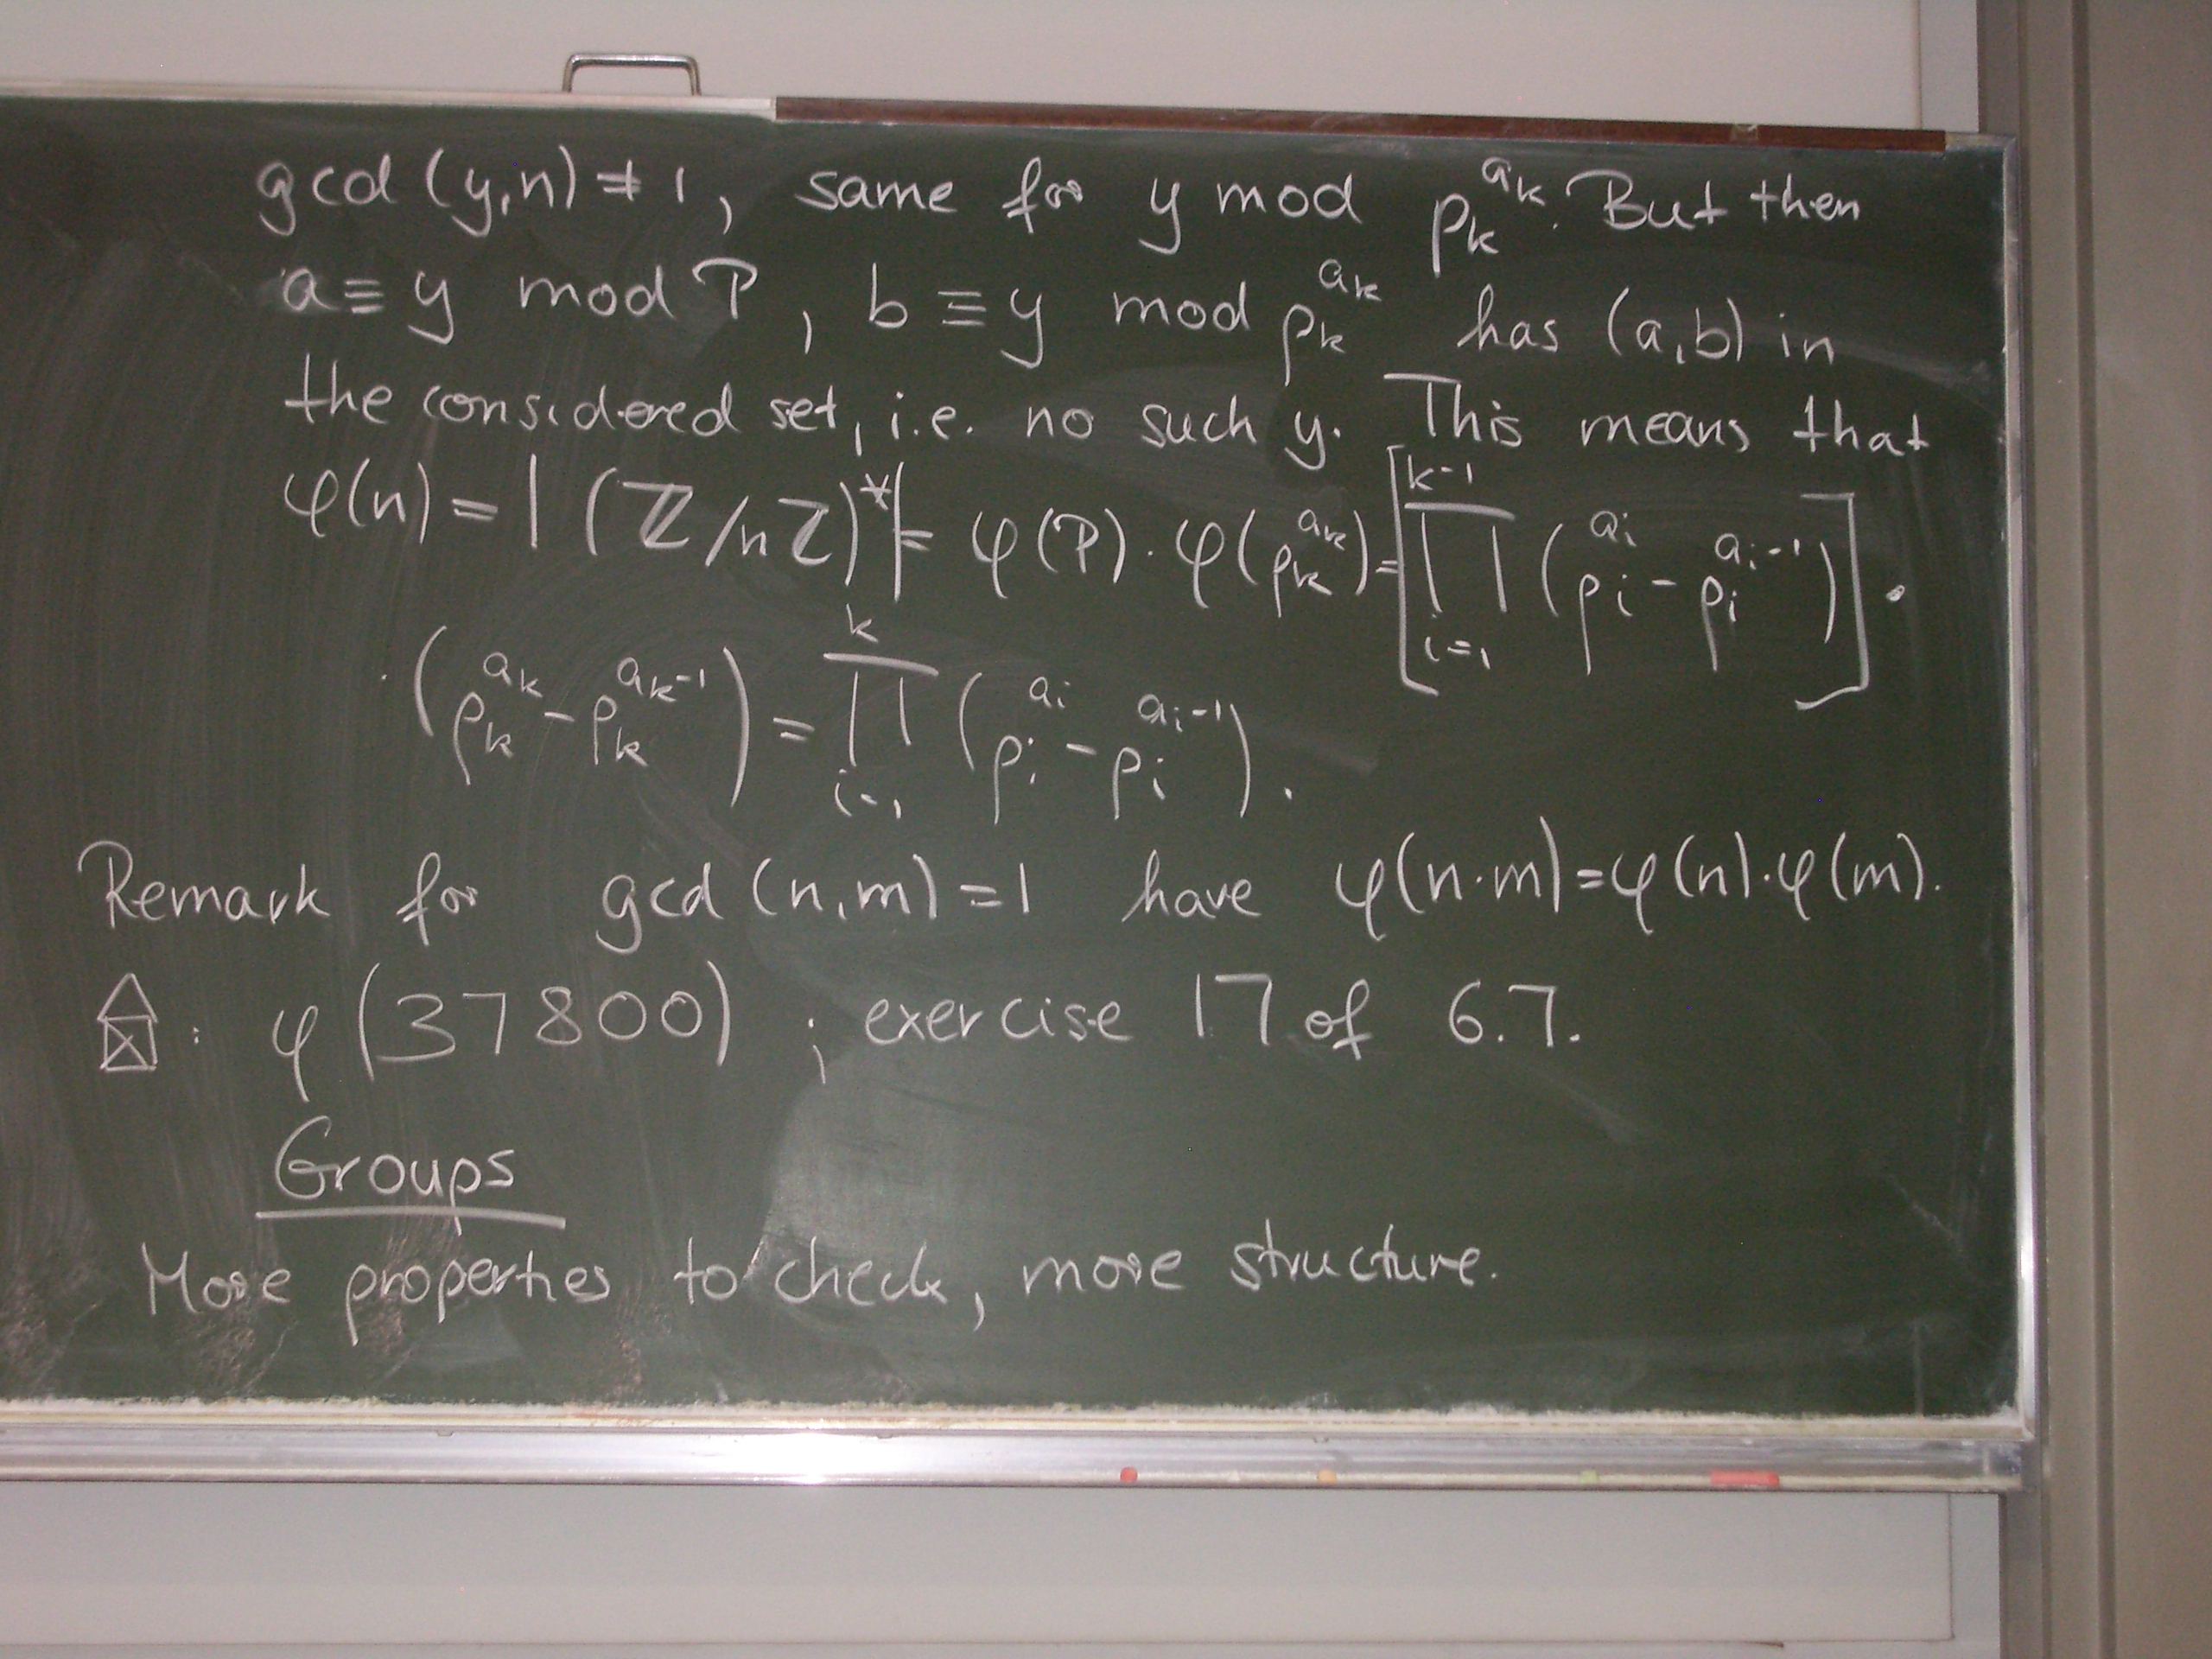 gcd(y,n)≠1, same for y mod p_k^{a_k}. But then
a≡y mod P, b≡y mod p_k^{a_k} has (a,b) in
the considered set, i.e. no such y. This means that
φ(n) = |(ℤ/nℤ)^*| = φ(P)·φ(p_k^{a_k}) = [∏_{i=1}^{k-1} (p_i^{a_i} - p_i^{a_i-1})]·
·(p_k^{a_k} - p_k^{a_k-1}) = ∏_{i=1}^{k} (p_i^{a_i} - p_i^{a_i-1}).
Remark for gcd(n,m)=1 have φ(n·m)=φ(n)·φ(m).
: φ(37800) ; exercise 17 of 6.7.
Groups
More properties to check, more structure.